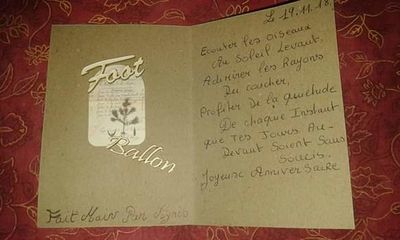 Foot
Ballon
Fait Main Par
Le 19.11.18
Ecouter les oiseaux
Au Soleil Levant.
Admirer les Rayons
Du coucher,
Profiter De la quiétude
De chaque Instant
que Tes Jours Au-
Devant Soient Sans
Soucis.
Joyeuse Anniversaire